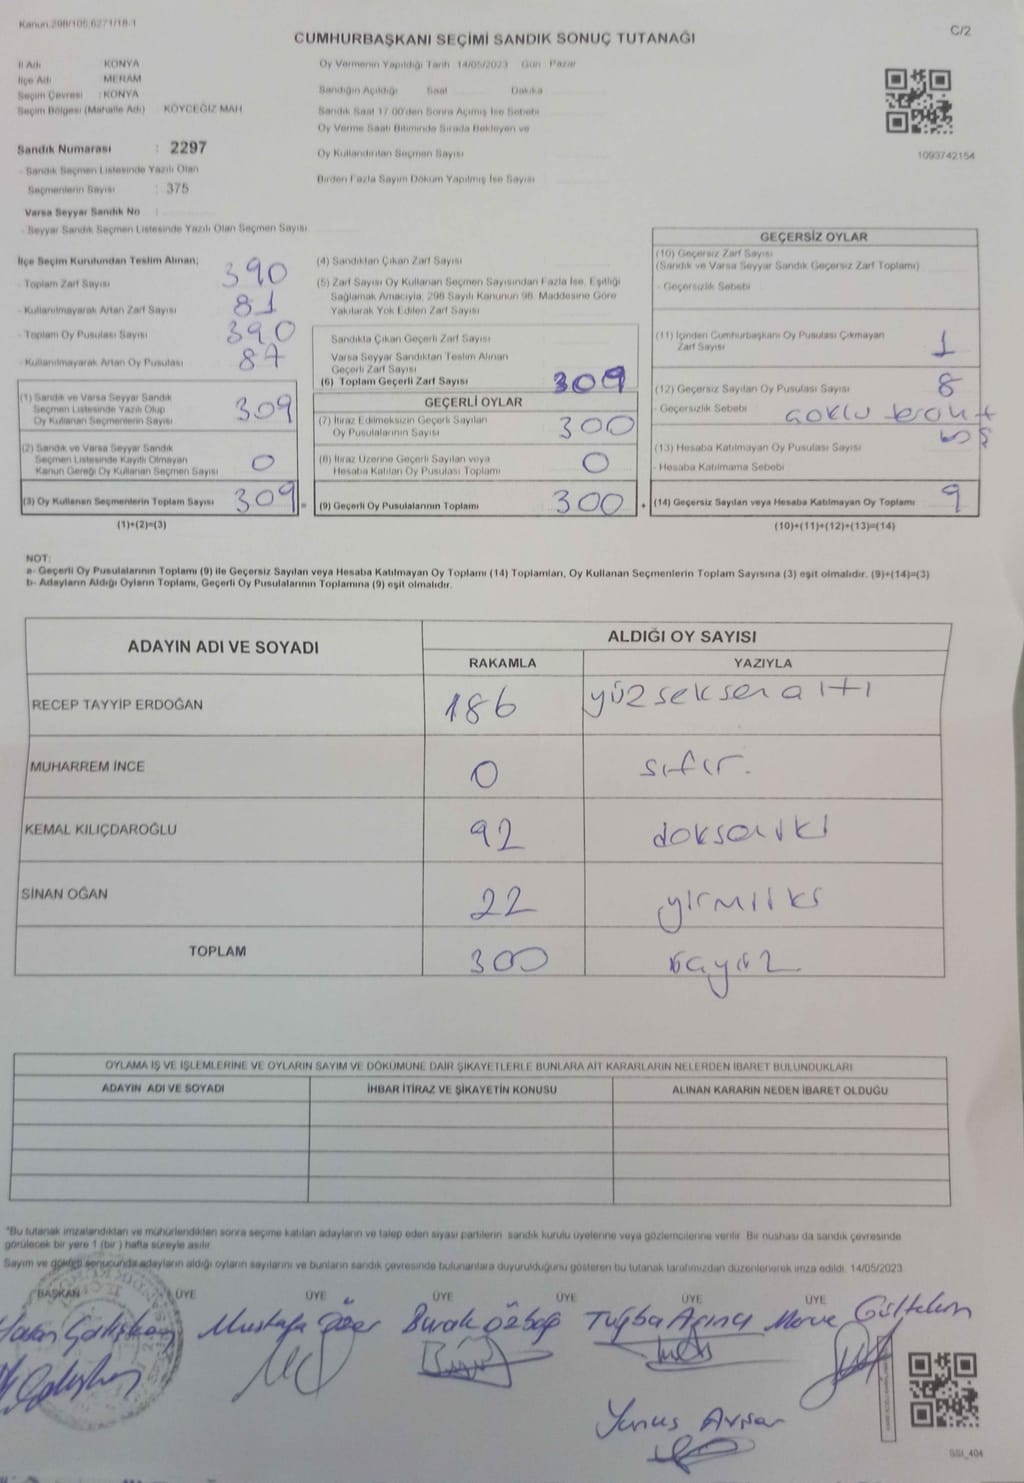 Kanun 298/105.6271/18-1
C/2
CUMHURBAŞKANI SEÇİMİ SANDIK SONUÇ TUTANAĞI
İl Adı KONYA
İlçe Adı MERAM
Seçim Çevresi : KONYA
Seçim Bölgesi (Mahalle Adı) KÖYCEĞİZ MAH.
Sandık Numarası : 2297
- Sandık Seçmen Listesinde Yazılı Olan
Seçmenlerin Sayısı : 375
Varsa Seyyar Sandık No :
- Seyyar Sandık Seçmen Listesinde Yazılı Olan Seçmen Sayısı
Oy Vermenin Yapıldığı Tarih 14/05/2023 Gün : Pazar
Sandığın Açıldığı Saat Dakika
Sandık Saat 17.00'den Sonra Açılmış İse Sebebi
Oy Verme Saati Bitiminde Sırada Bekleyen ve
Oy Kullandırılan Seçmen Sayısı
Birden Fazla Sayım Döküm Yapılmış İse Sayısı
1093742154
İlçe Seçim Kurulundan Teslim Alınan;
- Toplam Zarf Sayısı 390
- Kullanılmayarak Artan Zarf Sayısı 81
- Toplam Oy Pusulası Sayısı 390
- Kullanılmayarak Artan Oy Pusulası
(1) Sandık ve Varsa Seyyar Sandık
Seçmen Listesinde Yazılı Olup
Oy Kullanan Seçmenlerin Sayısı 309
(2) Sandık ve Varsa Seyyar Sandık
Seçmen Listesinde Kayıtlı Olmayan
Kanun Gereği Oy Kullanan Seçmen Sayısı 0
(3) Oy Kullanan Seçmenlerin Toplam Sayısı 309 =
(1)+(2)=(3)
(4) Sandıktan Çıkan Zarf Sayısı
(5) Zarf Sayısı Oy Kullanan Seçmen Sayısından Fazla İse, Eşitliği
Sağlamak Amacıyla, 298 Sayılı Kanunun 98. Maddesine Göre
Yakılarak Yok Edilen Zarf Sayısı
Sandıkta Çıkan Geçerli Zarf Sayısı
Varsa Seyyar Sandıktan Teslim Alınan
Geçerli Zarf Sayısı
(6) Toplam Geçerli Zarf Sayısı 309
GEÇERLİ OYLAR
(7) İtiraz Edilmeksizin Geçerli Sayılan
Oy Pusulalarının Sayısı 300
(8) İtiraz Üzerine Geçerli Sayılan veya
Hesaba Katılan Oy Pusulası Toplamı 0
(9) Geçerli Oy Pusulalarının Toplamı 300 +
GEÇERSİZ OYLAR
(10) Geçersiz Zarf Sayısı
(Sandık ve Varsa Seyyar Sandık Geçersiz Zarf Toplamı)
- Geçersizlik Sebebi
(11) İçinden Cumhurbaşkanı Oy Pusulası Çıkmayan
Zarf Sayısı 1
(12) Geçersiz Sayılan Oy Pusulası Sayısı 8
- Geçersizlik Sebebi
(13) Hesaba Katılmayan Oy Pusulası Sayısı
- Hesaba Katılmama Sebebi
(14) Geçersiz Sayılan veya Hesaba Katılmayan Oy Toplamı 9
(10)+(11)+(12)+(13)=(14)
NOT:
a- Geçerli Oy Pusulalarının Toplamı (9) ile Geçersiz Sayılan veya Hesaba Katılmayan Oy Toplamı (14) Toplamları, Oy Kullanan Seçmenlerin Toplam Sayısına (3) eşit olmalıdır. (9)+(14)=(3)
b- Adayların Aldığı Oyların Toplamı, Geçerli Oy Pusulalarının Toplamına (9) eşit olmalıdır.
ADAYIN ADI VE SOYADI ALDIĞI OY SAYISI
RAKAMLA YAZIYLA
RECEP TAYYİP ERDOĞAN 186 yüzseksenaltı
MUHARREM İNCE 0 sıfır.
KEMAL KILIÇDAROĞLU 92 doksaniki
SİNAN OĞAN 22 yirmiiki
TOPLAM 300
OYLAMA İŞ VE İŞLEMLERİNE VE OYLARIN SAYIM VE DÖKÜMÜNE DAİR ŞİKAYETLERLE BUNLARA AİT KARARLARIN NELERDEN İBARET BULUNDUKLARI
ADAYIN ADI VE SOYADI İHBAR İTİRAZ VE ŞİKAYETİN KONUSU ALINAN KARARIN NEDEN İBARET OLDUĞU
"Bu tutanak imzalandıktan ve mühürlendikten sonra seçime katılan adayların ve talep eden siyasi partilerin sandık kurulu üyelerine veya gözlemcilerine verilir. Bir nushası da sandık çevresinde
görülecek bir yere 1 (bir) hafta süreyle asılır.
Sayım ve döküm sonucunda adayların aldığı oyların sayılarını ve bunların sandık çevresinde bulunanlara duyurulduğunu gösteren bu tutanak tarafımızdan düzenlenerek imza edildi. 14/05/2023
BAŞKAN ÜYE ÜYE ÜYE ÜYE ÜYE ÜYE
Hasan Çalışkan Mustafa Özer Burak Özbağ Tuğba Ağırıcı Merve Gültekin
Yunus Avşar
SSI_404